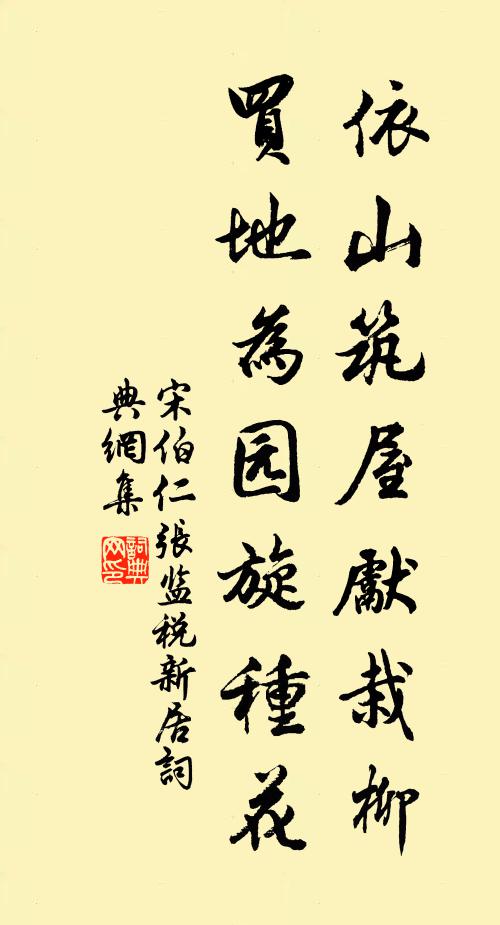 依山筑屋獻栽柳
買地為园旋種花
宋伯仁張监税新居詞
典網集
詞典
网印